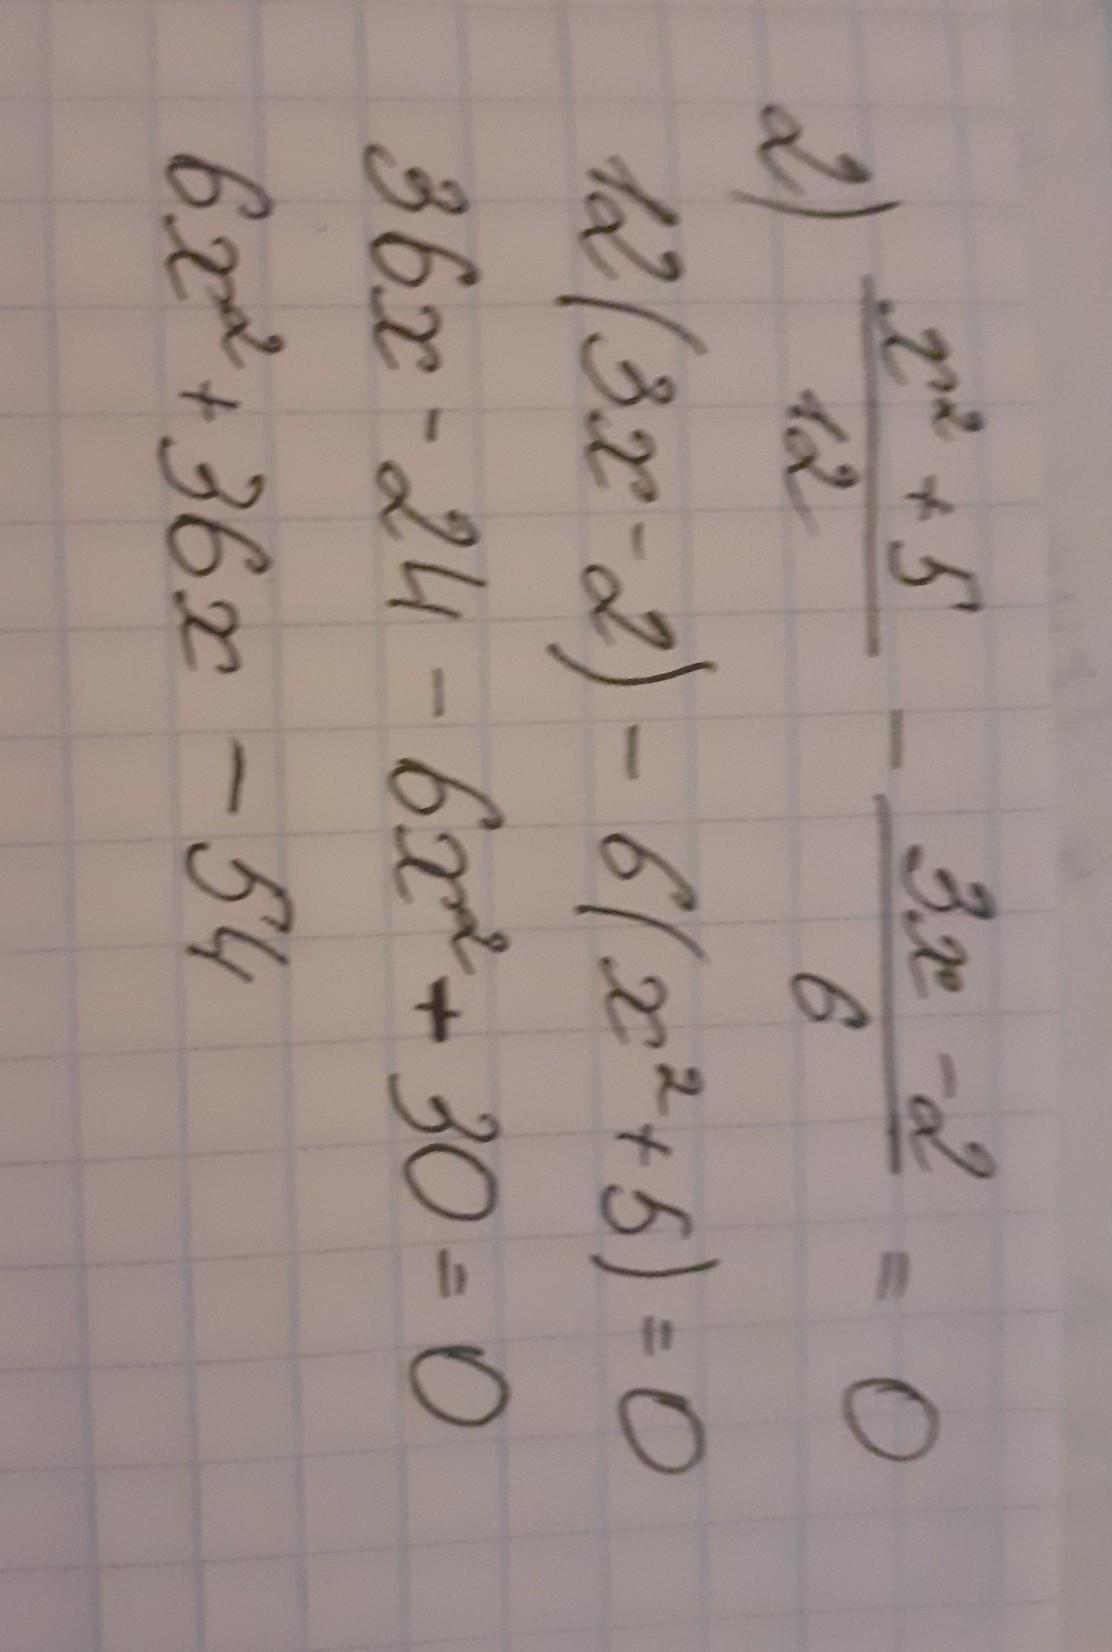 2) \frac{x² + 5}{12} - \frac{3x - 2}{6} = 0
12(3x - 2) - 6(x² + 5) = 0
36x - 24 - 6x² + 30 = 0
6x² + 36x - 54